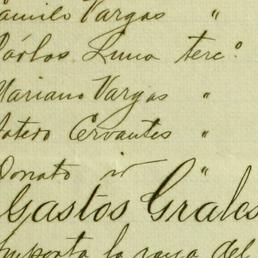 Camilo Vargas "
Cárlos Luna terc.º
Mariano Vargas "
Sotero Cervantes "
Donato "
Gastos Grales
Importa la raya del